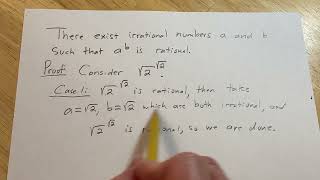 There exist irrational numbers a and b
such that a^b is rational.
Proof: Consider √2^√2.
Case 1: √2^√2 is rational, then take
a=√2, b=√2 which are both irrational, and
√2^√2 is rational, so we are done.